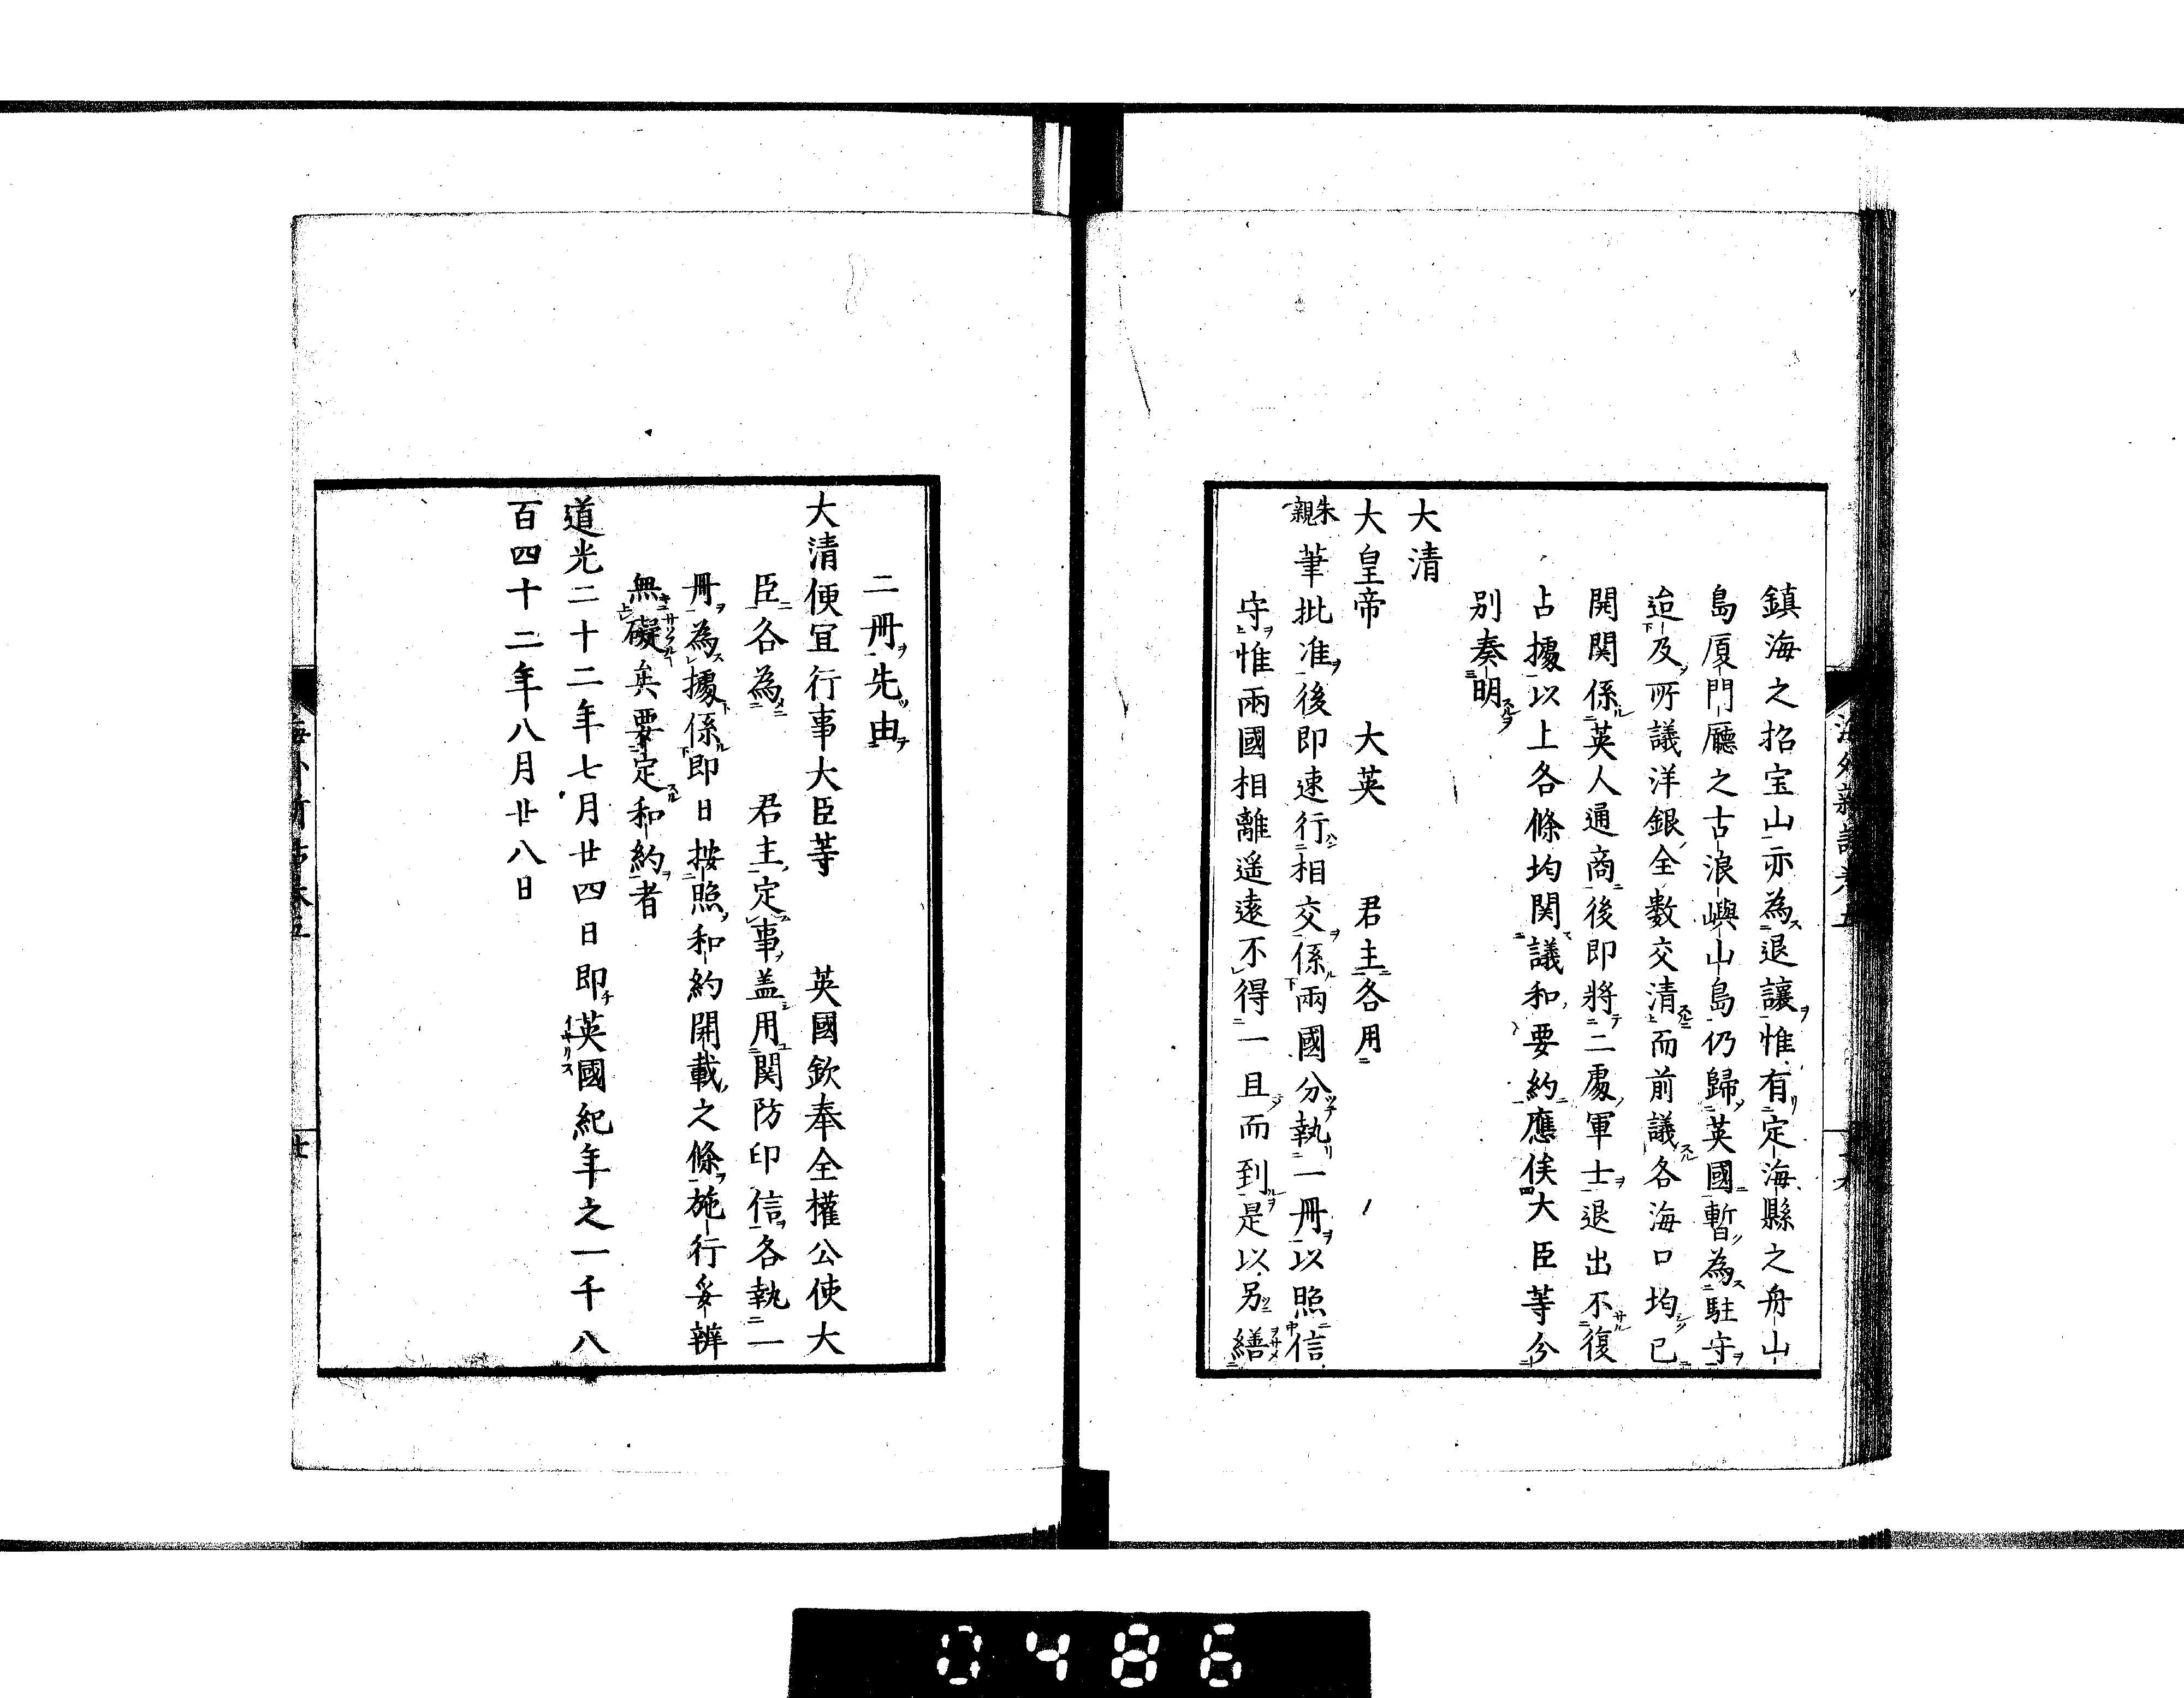 鎮海之招宝山亦為退讓惟有定海縣之舟山
島厦門廳之古浪嶼山島仍歸英國暫為駐守
迨及所議洋銀全數交清而前議各海口均已
開関係英人通商後即將二處軍士退出不復
占據以上各條均関議和要約應俟大臣等分
別奏明
大清
大皇帝　大英　君主各用
朱親筆批准後即速行相交係兩國分執一冊以照信
守惟兩國相離遥遠不得一旦而到是以另繕
二冊先由
大清便宜行事大臣等　英國欽奉全權公使大
臣各為　君主定事盖用関防印信各執一
冊為據係即日按照和約開載之條施行妥辨
無礙矣要定和約者
道光二十二年七月廿四日即英國紀年之一千八
百四十二年八月廿八日
0486